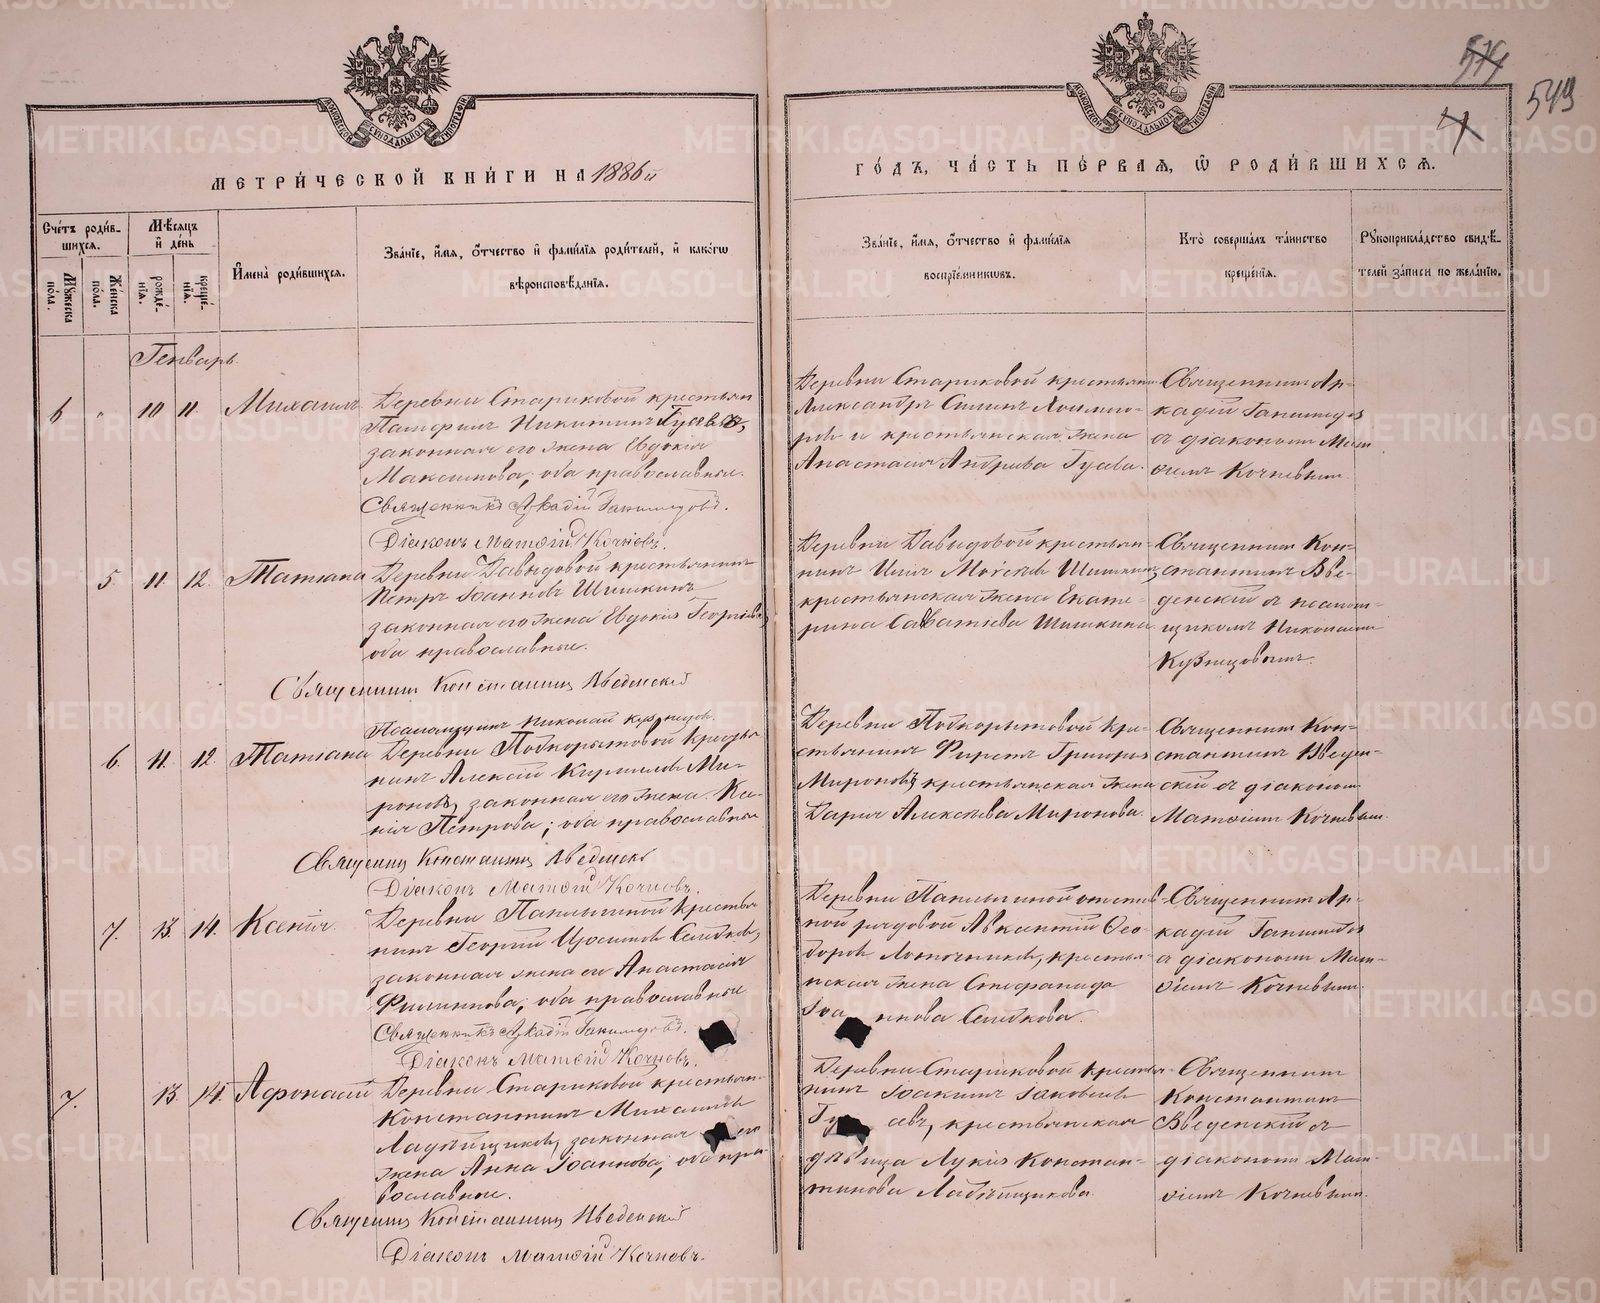 МЕТРИ́ЧЕСКОЙ КНИ́ГИ НА 1886й
ГО́ДЪ, ЧА́СТЬ ПЕ́РВАЯ, Ѡ РОДИ́ВШИХСЯ.
574
7
549
Сче́тъ роди́в-
шихся.
Му́жеска по́ла.
Же́нска по́ла.
Мѣ́сяцъ и де́нь
рожде́-
нія.
креще́-
нія.
Имена̀ роди́вшихся.
Зва́ніе, и́мя, о́тчество и фами́лія роди́телей, и како́гѡ
вѣроисповѣ́данія.
Зва́ніе, и́мя, о́тчество и фами́лія
воспріе́мниковъ.
Кто̀ соверша́лъ та́инство
креще́нія.
Рукоприкла́дство свидѣ́-
телей за́писи по жела́нію.
Генварь
6 „ 10 11. Михаилъ
Деревни Стариковой крестьян
Памфилъ Никитинъ Гусевъ,
законная его жена Евдокія
Максимова, оба православные.
Священникъ Аркадій Ганимедовъ.
Діаконъ Матѳій Кочневъ.
Деревни Стариковой крестьян
Александръ
и крестьянская жена
Анастасія Андреева Гусева.
Священникъ Ар-
кадій Ганимедов
съ діакономъ Мат
ѳіемъ Кочневымъ.
5 11. 12. Татіана
Деревни Давыдовой крестьянинъ
Петръ Іоанновъ Шишкинъ
законная его жена Евдокія Георгіева
оба православные.
Священникъ Константинъ Введенскій
Псаломщикъ Николай Кузнецовъ.
Деревни Давыдовой крестьян-
нинъ Моѵсеевъ Шишкинъ,
крестьянская жена Екате-
рина Савватіева Шишкина
Священникъ Кон-
стантинъ Вве-
денскій съ псалом-
щикомъ Николаемъ
Кузнецовымъ.
6. 11. 12. Татіана
Деревни Подкорытовой крестья
нинъ Алексій Кириловъ Ми-
роновъ, законная его жена Ксе-
нія Петрова; оба православные
Священникъ Константинъ Введенскій
Діаконъ Матѳій Кочневъ.
Деревни Подкорытовой кре-
стьянинъ Фирсъ Григорьев
Мироновъ, крестьянская жена
Дарія Алексѣева Миронова.
Священникъ Кон-
стантинъ Введен-
скій съ діакономъ
Матѳіемъ Кочневым.
7. 13. 14. Ксенія.
Деревни крестья
нинъ Георгій
законная жена его Анастасія
Филиппова; оба православные
Священникъ Аркадій Ганимедовъ.
Діаконъ Матѳій Кочневъ.
Деревни отстав-
ной рядовой Ѳео-
доровъ крестья-
нская жена Стефанида
Іоаннова
Священникъ Ар-
кадій Ганимедов
съ діакономъ Мат-
ѳіемъ Кочневымъ.
7. 13. 14. Аѳонасій
Деревни Стариковой крестьян-
Константинъ Михаиловъ
Ладейщиковъ, законная его
жена Анна Іоаннова; оба пра-
вославные.
Священникъ Константинъ Введенскій
Діаконъ Матѳій Кочневъ.
Деревни Стариковой крестья-
нинъ Іоакимъ Іаковлевъ
Гусевъ, крестьянская
дѣвица Лукія Констан-
тинова Ладейщикова.
Священникъ
Константинъ
Введенскій съ
діакономъ Мат-
ѳіемъ Кочневымъ.
METRIKI.GASO-URAL.RU